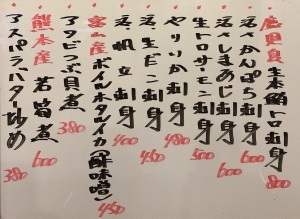 鹿児島生本鮪トロ刺身 800
活〆かんぱち刺身 600
活〆しまあじ刺身 600
生トロサーモン刺身 500
やりいか刺身 480
活生だこ刺身 450
活帆立刺身 400
富山産ボイルホタルイカ(酢味噌) 450
アカニシつぶ貝煮 380
熊本産若筍煮 600
アスパラバター炒め 380